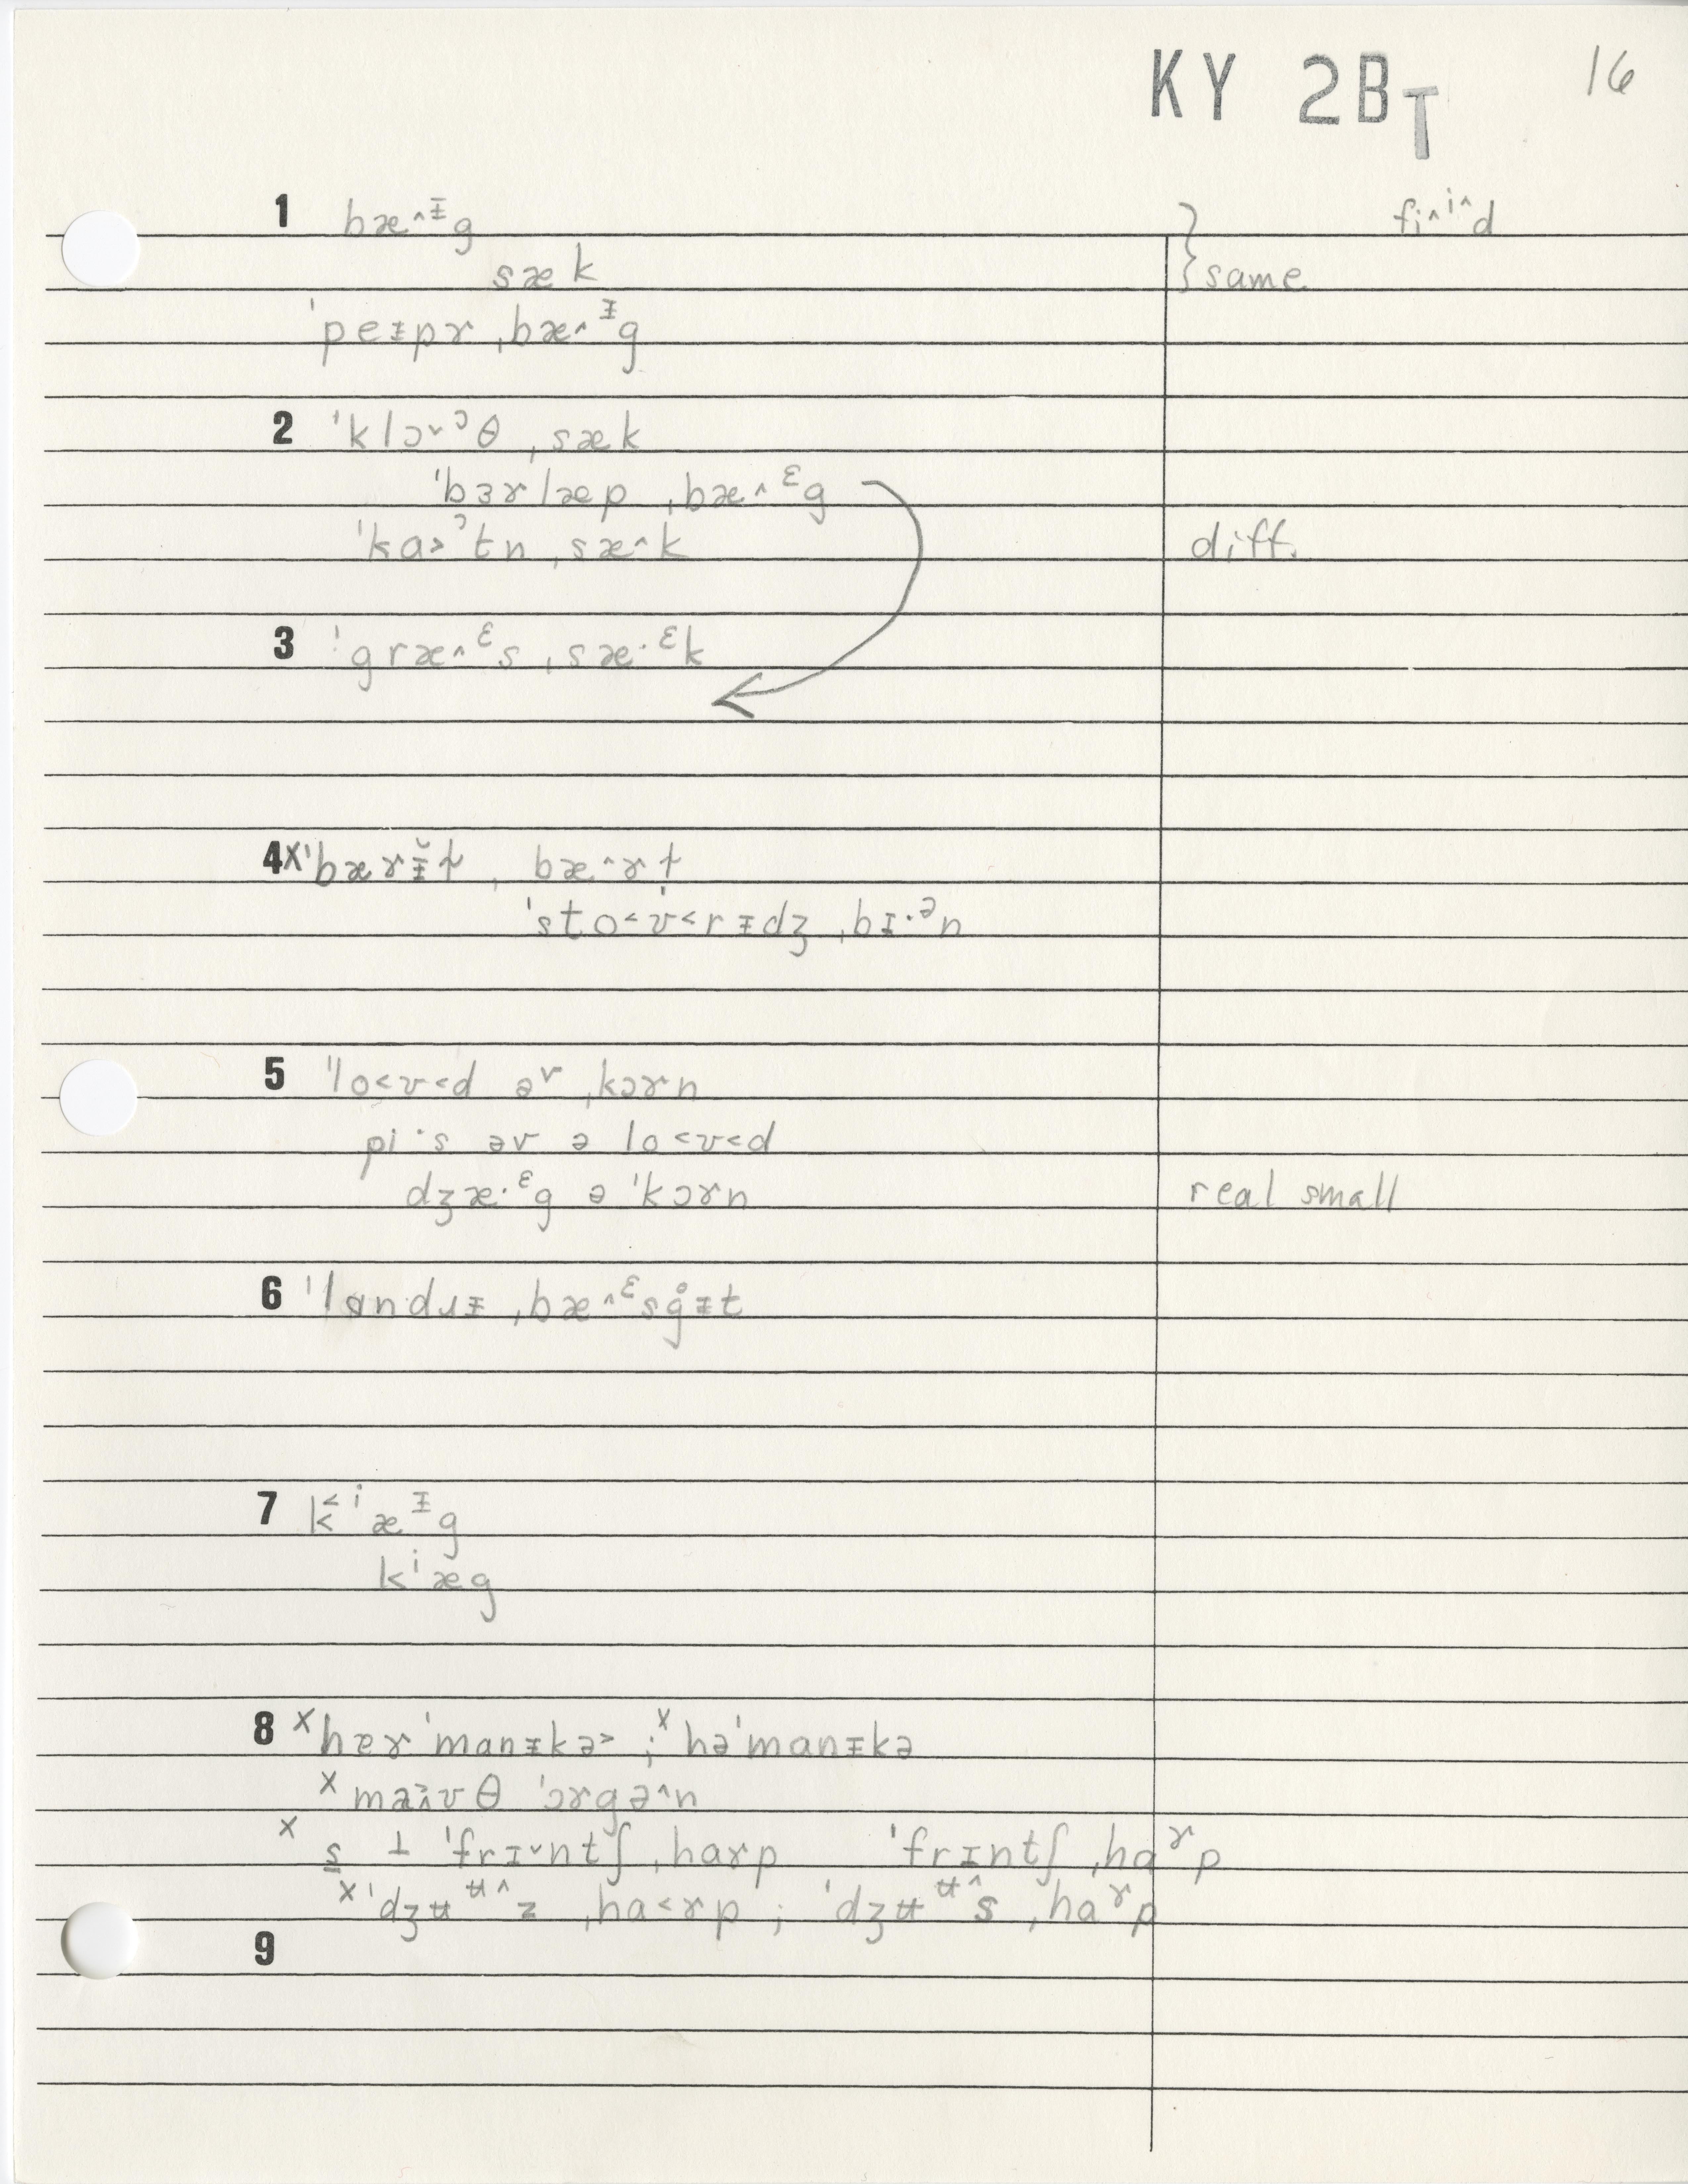 KY 2BT 16
1 bæ˄ᵻg } fi˄ⁱ˄d
sæk } same
ˈpeᵻpɤ ˌbæ˄ᵻg
2 ˈklɔ˅ᵓθ ˌsæk
ˈbɜɤlæp ˌbæ˄ᵋg
ˈkɑ˃ᵓtn ˌsæ˄k diff.
3 ˈgræ˄ᵋs ˌsæ·ᵋk
4 xˈbæɤᵻ̆t , bæ˄ɤt
ˈsto˂ʊ˂rᵻdʒ ˌbɪ·ᵊn
5 ˈlo˂ʊ˂d əv ˌkɔɤn
pi·s əv ə lo˂ʊ˂d
dʒæ·ᵋg ə ˈkɔɤn real small
6 ˈlɑndɹᵻ ˌbæ˄ᵋsg̊ᵻt
7 k˂ⁱæᵻg
kⁱæg
8 xhæɤˈmanᵻkə˃ ; xhəˈmanᵻkə
x θ ˈɔɤgə˄n
x s ⊥ ˈfrɪ˅ntʃ ˌhaɤp ˈfrɪntʃ ˌhɑɤp
xˈdʒʉᶶ˄z ˌhɑ˂ɤp ; ˈdʒʉᶶ˄s ˌhɑɤp
9